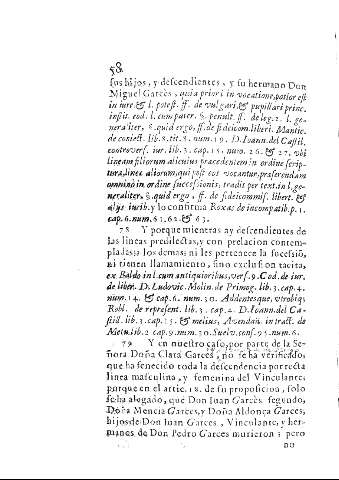 58
sus hijos, y descendientes, y su hermano Don
Miguel Garcès, quia priori in vocatione, potior est
in iure, & l. potest. ff. de vulgari, & pupillari princ.
instit. eod. l. cum pater. §. penult. ff. de leg. 2. l. ge-
neraliter, §. quid ergo, ff. de fideicom. liberi. Mantic.
de coniect. lib. 8. tit. 8. num. 19. D. Ioann. del Castil.
controvers. iur. lib. 3. cap. 15. num. 26. & 27. ubi
lineam filiorum alicuius præcedentem in ordine scrip-
tura, linea aliorum, qui post eos vocantur, præferendam
omnino in ordine successionis, tradit per text. in l. ge-
neraliter, §. quid ergo, ff. de fideicommiss. libert. &
alijs iurib. y lo confirma Roxas de incompatib. p. 1.
cap. 6. num. 63. 62. & 63.
78 Y porque mientras ay descendientes de
las lineas predilectas, y con prelacion contem-
pladas; à los demàs, ni les pertenece la sucessiõ,
ni tienen llamamiento, sino exclusion tacita,
ex Baldo in l. cum antiquioribus, vers. 9. Cod. de iur.
de liber. D. Ludovic. Molin. de Primog. lib. 3. cap. 4.
num. 14. & cap. 6. num. 30. Addentesque, utrobiq;
Robl. de represent. lib. 3. cap. 2. D. Ioann. del Ca-
stil. lib. 3. cap. 15. & melius, Avendañ. in tract. de
Metu. lib. 2. cap. 9. num. 10. Suelv. cons. 95. num. 6.
79 Y en nuestro caso, por parte de la Se-
ñora Doña Clara Garcès, no se ha verificado,
que ha fenecido toda la descendencia por recta
linea masculina, y femenina del Vinculante;
porque en el artic. 18. de su proposicion, solo
se ha alegado, que Don Iuan Garcès segundo,
Doña Mencia Garces, y Doña Aldonça Garces,
hijos de Don Iuan Garces, Vinculante, y her-
manos de Don Pedro Garces murieron; pero
no